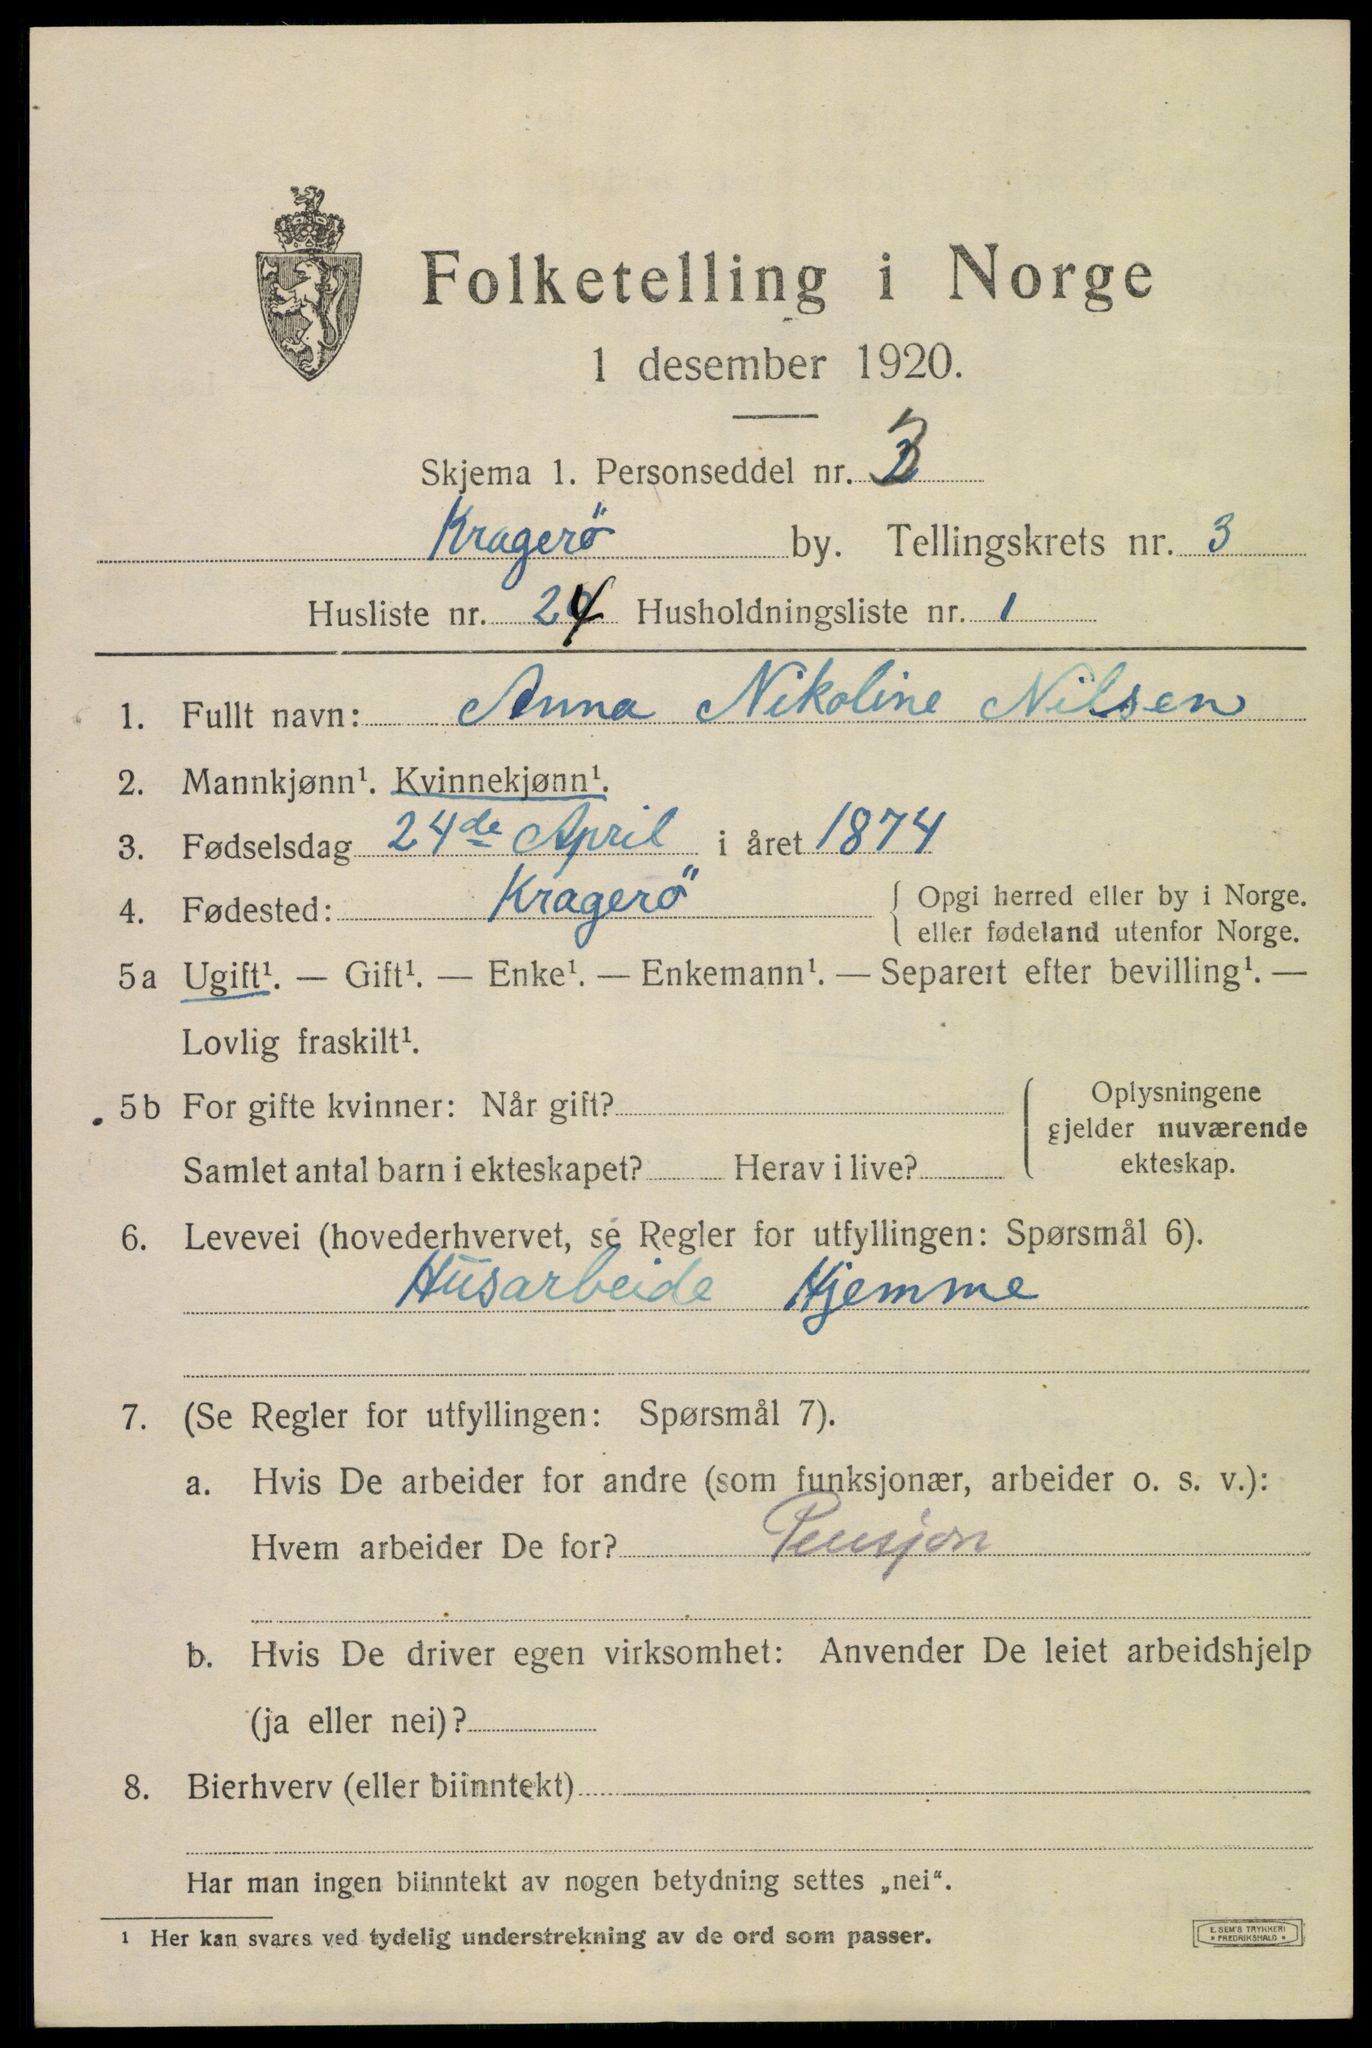 Folketelling i Norge
1 desember 1920.
Skjema 1. Personseddel nr. 3
Kragerö by. Tellingskrets nr. 3
Husliste nr. 24 Husholdningsliste nr. 1
1. Fullt navn: Anna Nikoline Nilsen
2. Mannkjønn¹. Kvinnekjønn¹.
3. Fødselsdag 24de April i året 1874
4. Fødested: Kragerö { Opgi herred eller by i Norge.
eller fødeland utenfor Norge.
5a Ugift¹. — Gift¹. — Enke¹. — Enkemann¹. — Separert efter bevilling¹. —
Lovlig fraskilt¹.
5b For gifte kvinner: Når gift?
Samlet antal barn i ekteskapet? Herav i live?
Oplysningene
gjelder nuværende
ekteskap.
6. Levevei (hovederhvervet, se Regler for utfyllingen: Spørsmål 6).
Husarbeide Hjemme
7. (Se Regler for utfyllingen: Spørsmål 7).
a. Hvis De arbeider for andre (som funksjonær, arbeider o. s. v.):
Hvem arbeider De for? Pensjon
b. Hvis De driver egen virksomhet: Anvender De leiet arbeidshjelp
(ja eller nei)?
8. Bierhverv (eller biinntekt)
Har man ingen biinntekt av nogen betydning settes „nei“.
1 Her kan svares ved tydelig understrekning av de ord som passer.
E. SEM'S TRYKKERI
* FREDRIKSHALD *